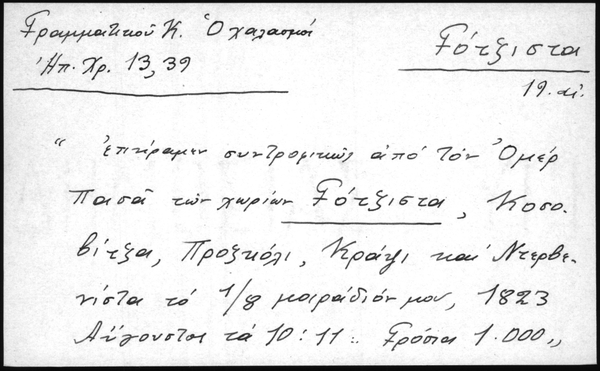 Γραμματικοῦ Κ. Ὁ χαλασμοί
Ἠπ. Χρ. 13, 39
Γότζιστα
19. αἰ.
" ἐπήραμεν συντροφικῶς ἀπό τόν Ὀμέρ
Πασᾶ τῶν χωρίων Γότζιστα, Κοσο-
βίτζα, Προξκόλι, Κράψι καί Ντερβε-
νίστα τό 1/8 μοιράδιόν μου, 1823
Αὐγούστου τά 10: 11:. Γρόσια 1.000,,